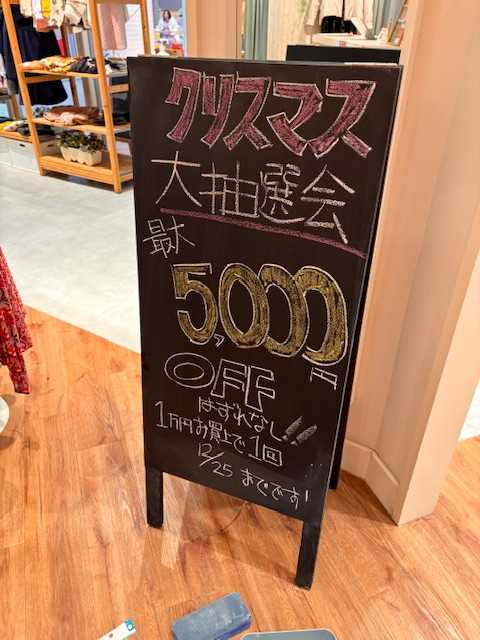 クリスマス
大抽選会
最大
5,000円
OFF
はずれなし!!
1万円お買上で1回
12/25 までです!